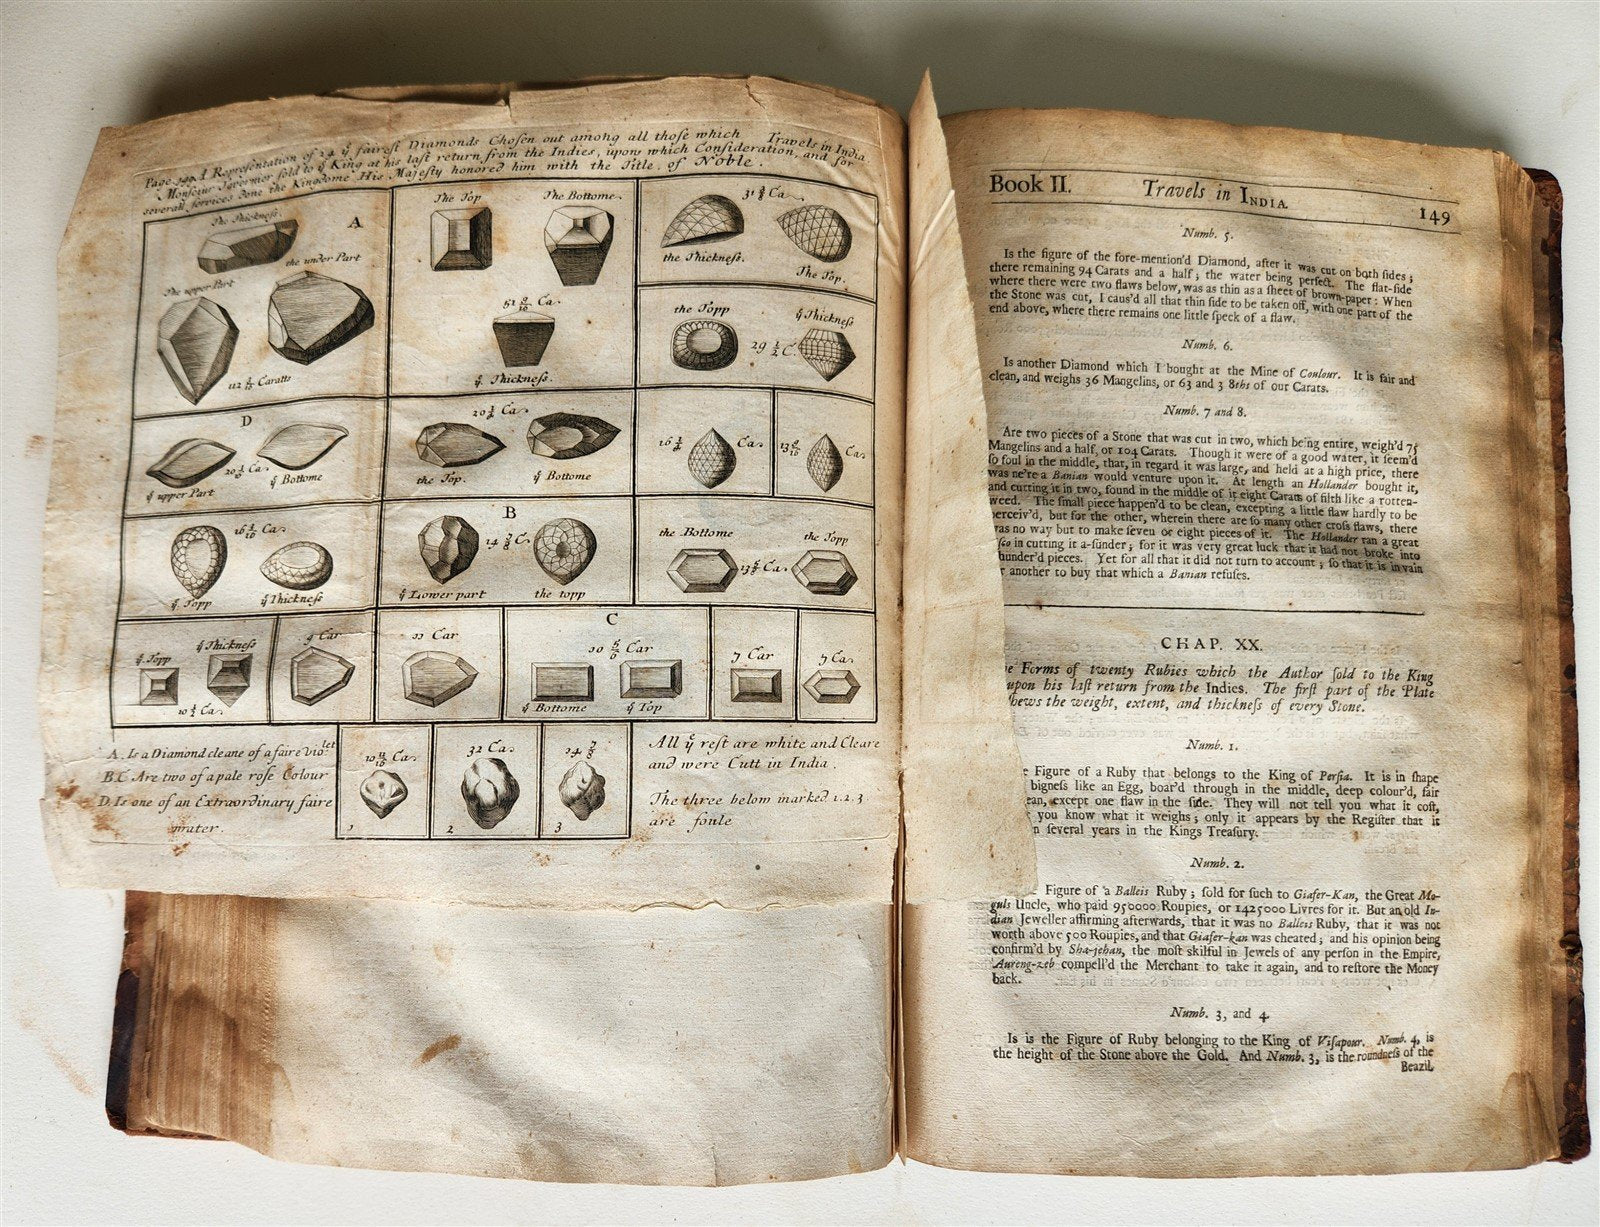 Page 149. A Representation of 24 yͤ fairest Diamonds Choſen out among all thoſe which Travels in India
Monſieur Tavernier ſold to yͤ King at his laſt return from the Indies, upon which Conſideration, and for
ſeverall ſervices done the Kingdome His Majeſty honored him with the Title of Noble.
A
The Thickneſs.
the under Part
The upper Part
112 3/16 Caratts
The Top
The Bottome
51 9/16 Ca.
yͤ Thickneſs.
Ca.
the Thickneſs.
The Top.
the Topp
yͤ Thickneſs
29 1/2 C.
D
Ca.
yͤ upper Part
yͤ Bottome
Ca.
the Top.
yͤ Bottome
Ca.
Ca.
Ca.
yͤ Topp
yͤ Thickneſs
B
C.
yͤ Lower part
the topp
the Bottome
the Topp
Ca.
yͤ Topp
yͤ Thickneſs
Ca.
9 Car
11 Car
C
Car
yͤ Bottome
yͤ Top
7 Car
Ca.
A. Is a Diamond cleane of a faire violet
B.C. Are two of a pale roſe Colour
D. Is one of an Extraordinary faire
water.
Ca.
1
32 Ca.
2
3
All yͤ reſt are white and Cleare
and were Cutt in India.
The three below marked 1.2.3
are foule
Book II. Travels in INDIA. 149
Numb. 5.
Is the figure of the fore-mention'd Diamond, after it was cut on both ſides;
there remaining 94 Carats and a half; the water being perfect. The flat-ſide
where there were two flaws below, was as thin as a ſheet of brown-paper: When
the Stone was cut, I caus'd all that thin ſide to be taken off, with one part of the
end above, where there remains one little ſpeck of a flaw.
Numb. 6.
Is another Diamond which I bought at the Mine of Coulour. It is fair and
clean, and weighs 36 Mangelins, or 63 and 3 8ths of our Carats.
Numb. 7 and 8.
Are two pieces of a Stone that was cut in two, which being entire, weigh'd 75
Mangelins and a half, or 104 Carats. Though it were of a good water, it ſeem'd
ſo foul in the middle, that, in regard it was large, and held at a high price, there
was ne're a Banian would venture upon it. At length an Hollander bought it,
and cutting it in two, found in the middle of it eight Carats of filth like a rotten-
weed. The ſmall piece happen'd to be clean, excepting a little flaw hardly to be
perceiv'd, but for the other, wherein there are ſo many other croſs flaws, there
was no way but to make ſeven or eight pieces of it. The Hollander ran a great
in cutting it a-ſunder; for it was very great luck that it had not broke into
hunder'd pieces. Yet for all that it did not turn to account; ſo that it is in vain
another to buy that which a Banian refuſes.
CHAP. XX.
Forms of twenty Rubies which the Author ſold to the King
upon his laſt return from the Indies. The firſt part of the Plate
hews the weight, extent, and thickneſs of every Stone.
Numb. 1.
Figure of a Ruby that belongs to the King of Perſia. It is in ſhape
bigneſs like an Egg, boar'd through in the middle, deep colour'd, fair
ean, except one flaw in the ſide. They will not tell you what it coſt,
you know what it weighs; only it appears by the Regiſter that it
n ſeveral years in the Kings Treaſury.
Numb. 2.
Figure of a Balleis Ruby; ſold for ſuch to Giafer-Kan, the Great Mo-
guls Uncle, who paid 950000 Roupies, or 1425000 Livres for it. But an old In-
dian Jeweller affirming afterwards, that it was no Balleis Ruby, that it was not
worth above 500 Roupies, and that Giafer-kan was cheated; and his opinion being
confirm'd by Sha-jehan, the moſt skilful in Jewels of any perſon in the Empire,
Aureng-zeb compell'd the Merchant to take it again, and to reſtore the Money
back.
Numb. 3, and 4.
Is is the Figure of Ruby belonging to the King of Viſapour. Numb. 4, is
the height of the Stone above the Gold. And Numb. 3, is the roundneſs of the
Beazil.